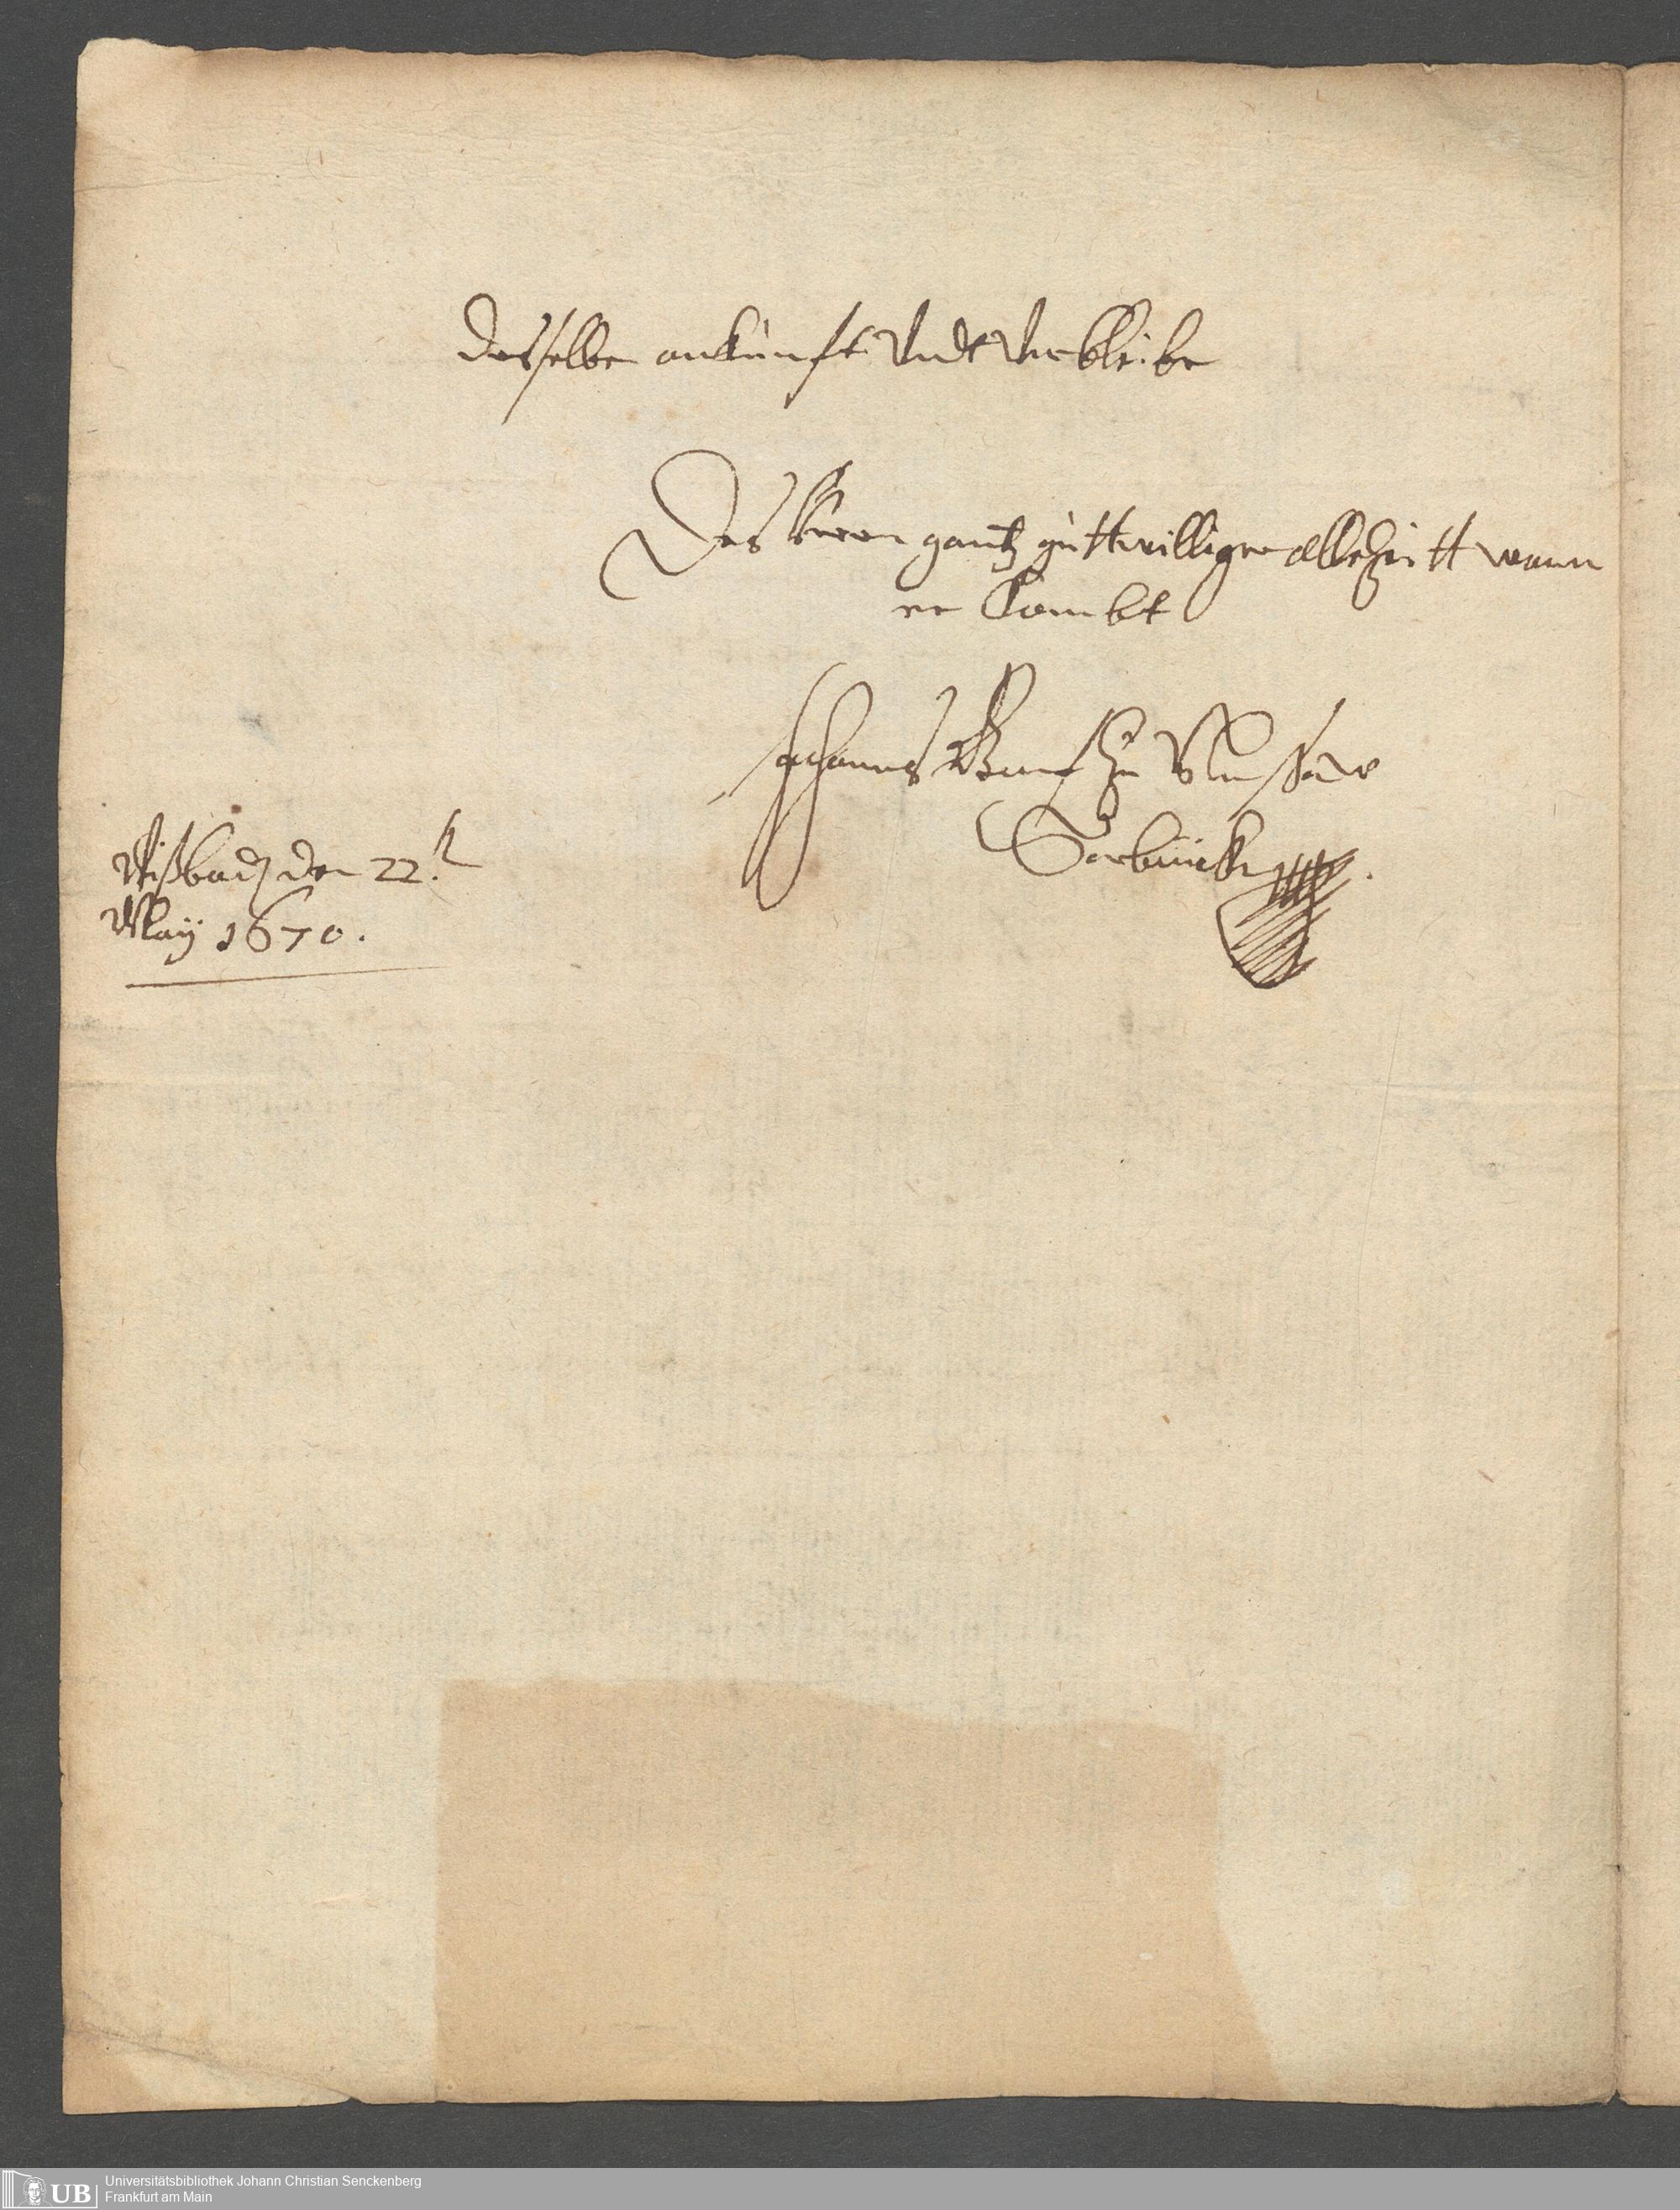 desselben ankunft Undt Verbleibe
Des Herren gantz guttwilliger allezeitt wann
er Kombt
Johannes Graf zu Nassaw
Sarbrücken
Wißbad den 22.
May 1670.
UB Universitätsbibliothek Johann Christian Senckenberg
Frankfurt am Main